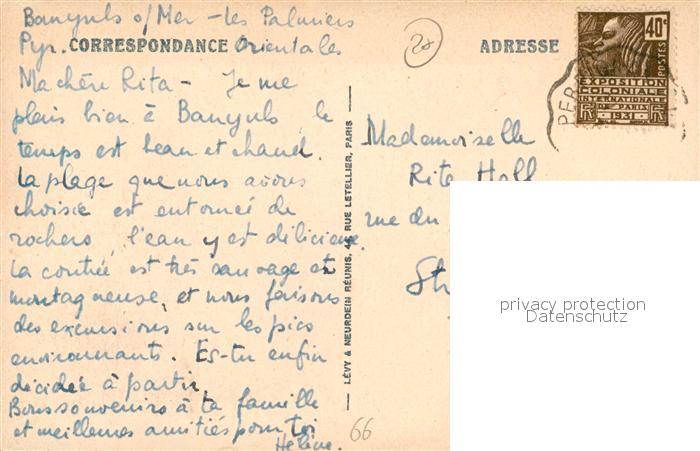 Banyuls s/Mer - Les Palmiers
Pyr. Orientales
CORRESPONDANCE
Ma chère Rita - Je me
plais bien à Banyuls, le
temps est beau et chaud.
La plage que nous avons
choisie est entourée de
rochers, l'eau y est délicieuse.
La contrée est très sauvage et
montagneuse, et nous faisons
des excursions sur les pics
environnants. Es-tu enfin
décidée à partir.
Bons souvenirs à ta famille
et meilleures amitiés pour toi
Hélène.
66
LÉVY & NEURDEIN RÉUNIS, 44, RUE LETELLIER, PARIS
ADRESSE
40c
POSTES
EXPOSITION
COLONIALE
INTERNATIONALE
DE PARIS
1931
PER
Mademoiselle
Rita
rue du
privacy protection
Datenschutz